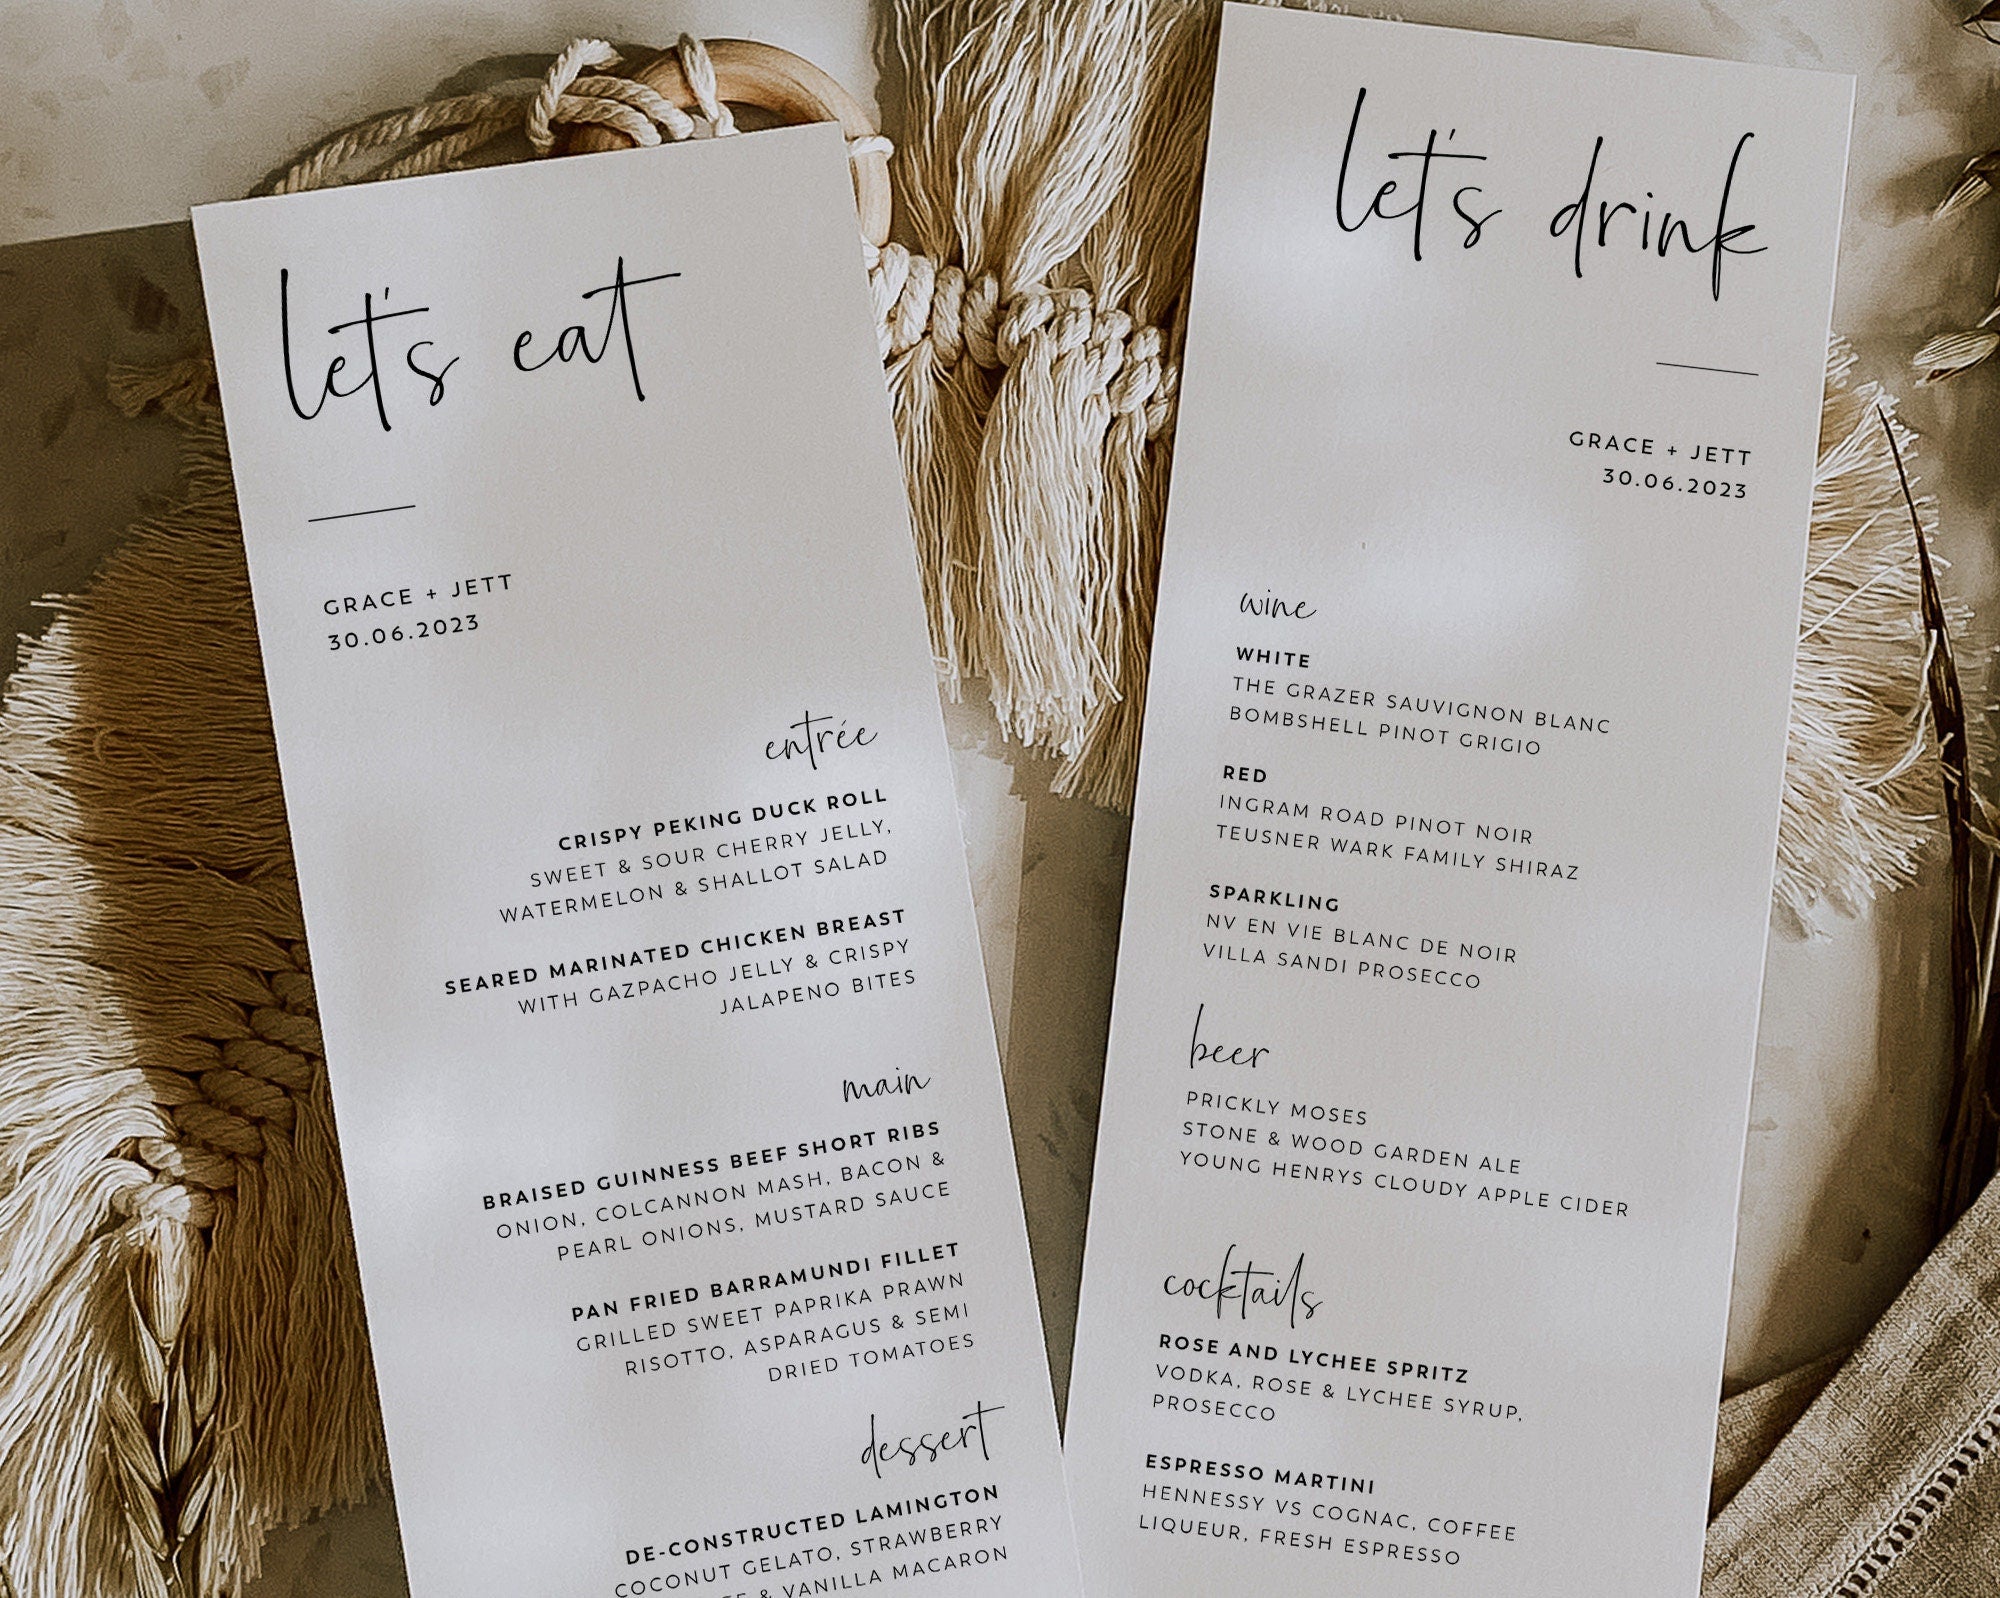 let's eat
GRACE + JETT
30.06.2023
entrée
CRISPY PEKING DUCK ROLL
SWEET & SOUR CHERRY JELLY,
WATERMELON & SHALLOT SALAD
SEARED MARINATED CHICKEN BREAST
WITH GAZPACHO JELLY & CRISPY
JALAPENO BITES
main
BRAISED GUINNESS BEEF SHORT RIBS
ONION, COLCANNON MASH, BACON &
PEARL ONIONS, MUSTARD SAUCE
PAN FRIED BARRAMUNDI FILLET
GRILLED SWEET PAPRIKA PRAWN
RISOTTO, ASPARAGUS & SEMI
DRIED TOMATOES
dessert
DE-CONSTRUCTED LAMINGTON
COCONUT GELATO, STRAWBERRY
& VANILLA MACARON
let's drink
GRACE + JETT
30.06.2023
wine
WHITE
THE GRAZER SAUVIGNON BLANC
BOMBSHELL PINOT GRIGIO
RED
INGRAM ROAD PINOT NOIR
TEUSNER WARK FAMILY SHIRAZ
SPARKLING
NV EN VIE BLANC DE NOIR
VILLA SANDI PROSECCO
beer
PRICKLY MOSES
STONE & WOOD GARDEN ALE
YOUNG HENRYS CLOUDY APPLE CIDER
cocktails
ROSE AND LYCHEE SPRITZ
VODKA, ROSE & LYCHEE SYRUP,
PROSECCO
ESPRESSO MARTINI
HENNESSY VS COGNAC, COFFEE
LIQUEUR, FRESH ESPRESSO